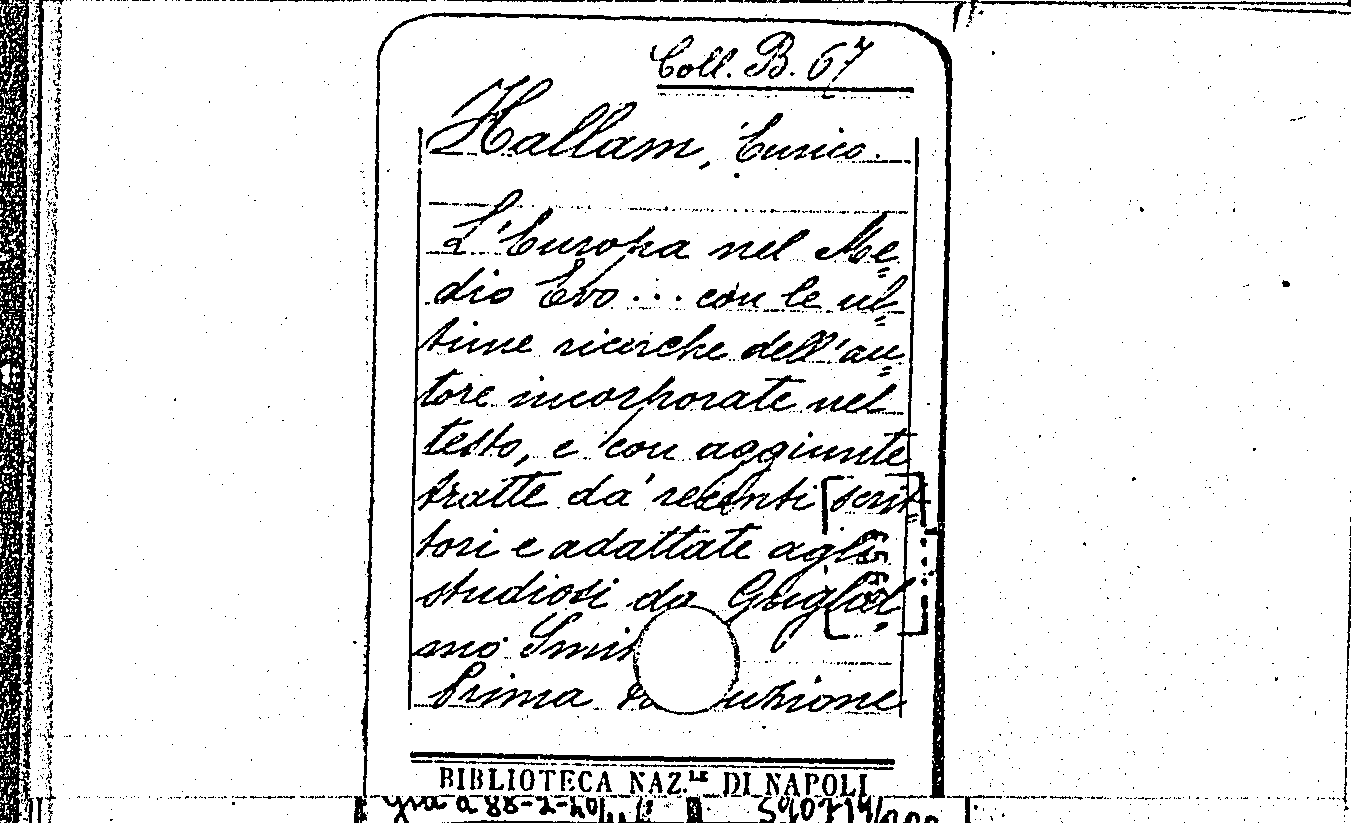 Coll. B. 67
Hallam, Enrico.
L'Europa nel Me=
dio Evo... con le ul=
time ricerche dell'au=
tore incorporate nel
testo, e con aggiunte
tratte da' recenti scrit=
tori e adattate agli
studiosi da Gugliel=
mo Smi
Prima uzione
BIBLIOTECA NAZ.LE DI NAPOLI